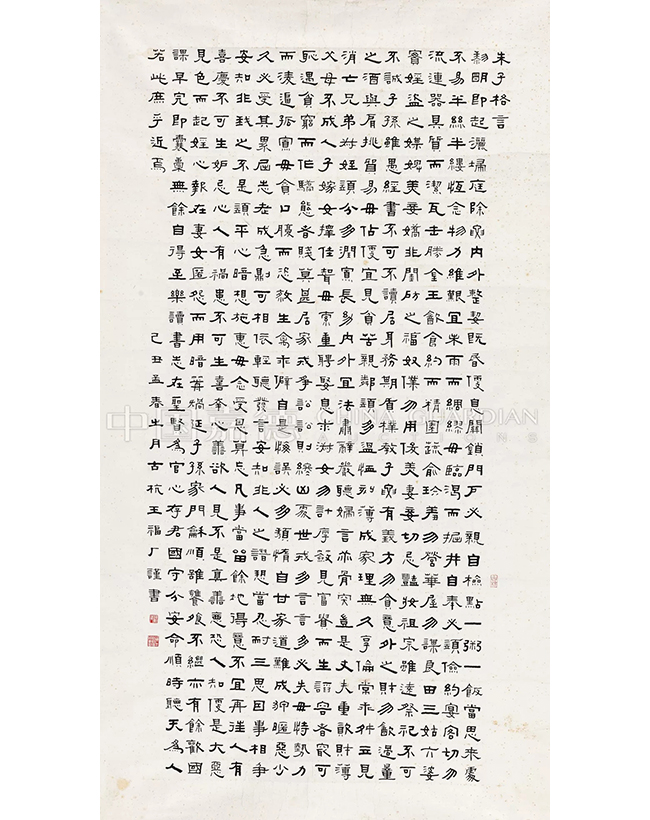 朱子格言
黎明即起灑埽庭除要內外整絜既昏便自關鎖門戶必親自檢點一粥一飯當思來處
不易半絲半縷恆念物力維艱宜未雨而綢繆毋臨渴而掘井自奉必須儉約宴客切勿
流連器具質而潔瓦缶勝金玉飲食約而精園蔬愈珍羞勿營華屋勿謀良田三姑六婆
實婬盜之媒婢美妾嬌非閨房之福奴僕勿用俊美妻妾切忌豔妝祖宗雖遠祭祀不可
不誠子孫雖愚經書不可不讀居身務期質樸教子要有義方勿貪意外之財勿飲過量
之酒與肩挑貿易毋佔便宜見貧苦親鄰須多溫恤刻薄成家理無久享倫常乖舛立見
消亡兄弟叔姪須分多潤寡長幼內外宜法肅辭嚴聽婦言乖骨肉豈是丈夫重貲財薄
父母不成人子嫁女擇佳壻毋索重聘娶息求淑女勿計厚奩見富貴而生諂容者最可
恥遇貧窮而作驕態者賤莫甚居家戒爭訟訟則終凶處世戒多言言多必失毋恃勢力
而淩逼孤寡毋貪口腹而恣殺生禽乖僻自是悔誤必多頹惰自甘家道難成狎暱惡少
久必受其累屈志老成急則可相依輕聽發言安知非人之譖愬當忍耐三思因事相爭
安知非我之不是須平心暗想施惠毋念受恩莫忘凡事當留餘地得意不宜再往人有
喜慶不可生妒忌心人有禍患不可生喜幸心善欲人見不是真善惡恐人知便是大惡
見色而起婬心報在妻女匿怨而用暗箭禍延子孫家門龢順雖饔飧不繼亦有餘歡國
課早完即囊橐無餘自得至樂讀書志在聖賢為官心存君國守分安命順時聽天為人
若此庶乎近焉
己丑孟春之月古杭王福厂謹書
中国嘉德 CHINA GUARDIAN